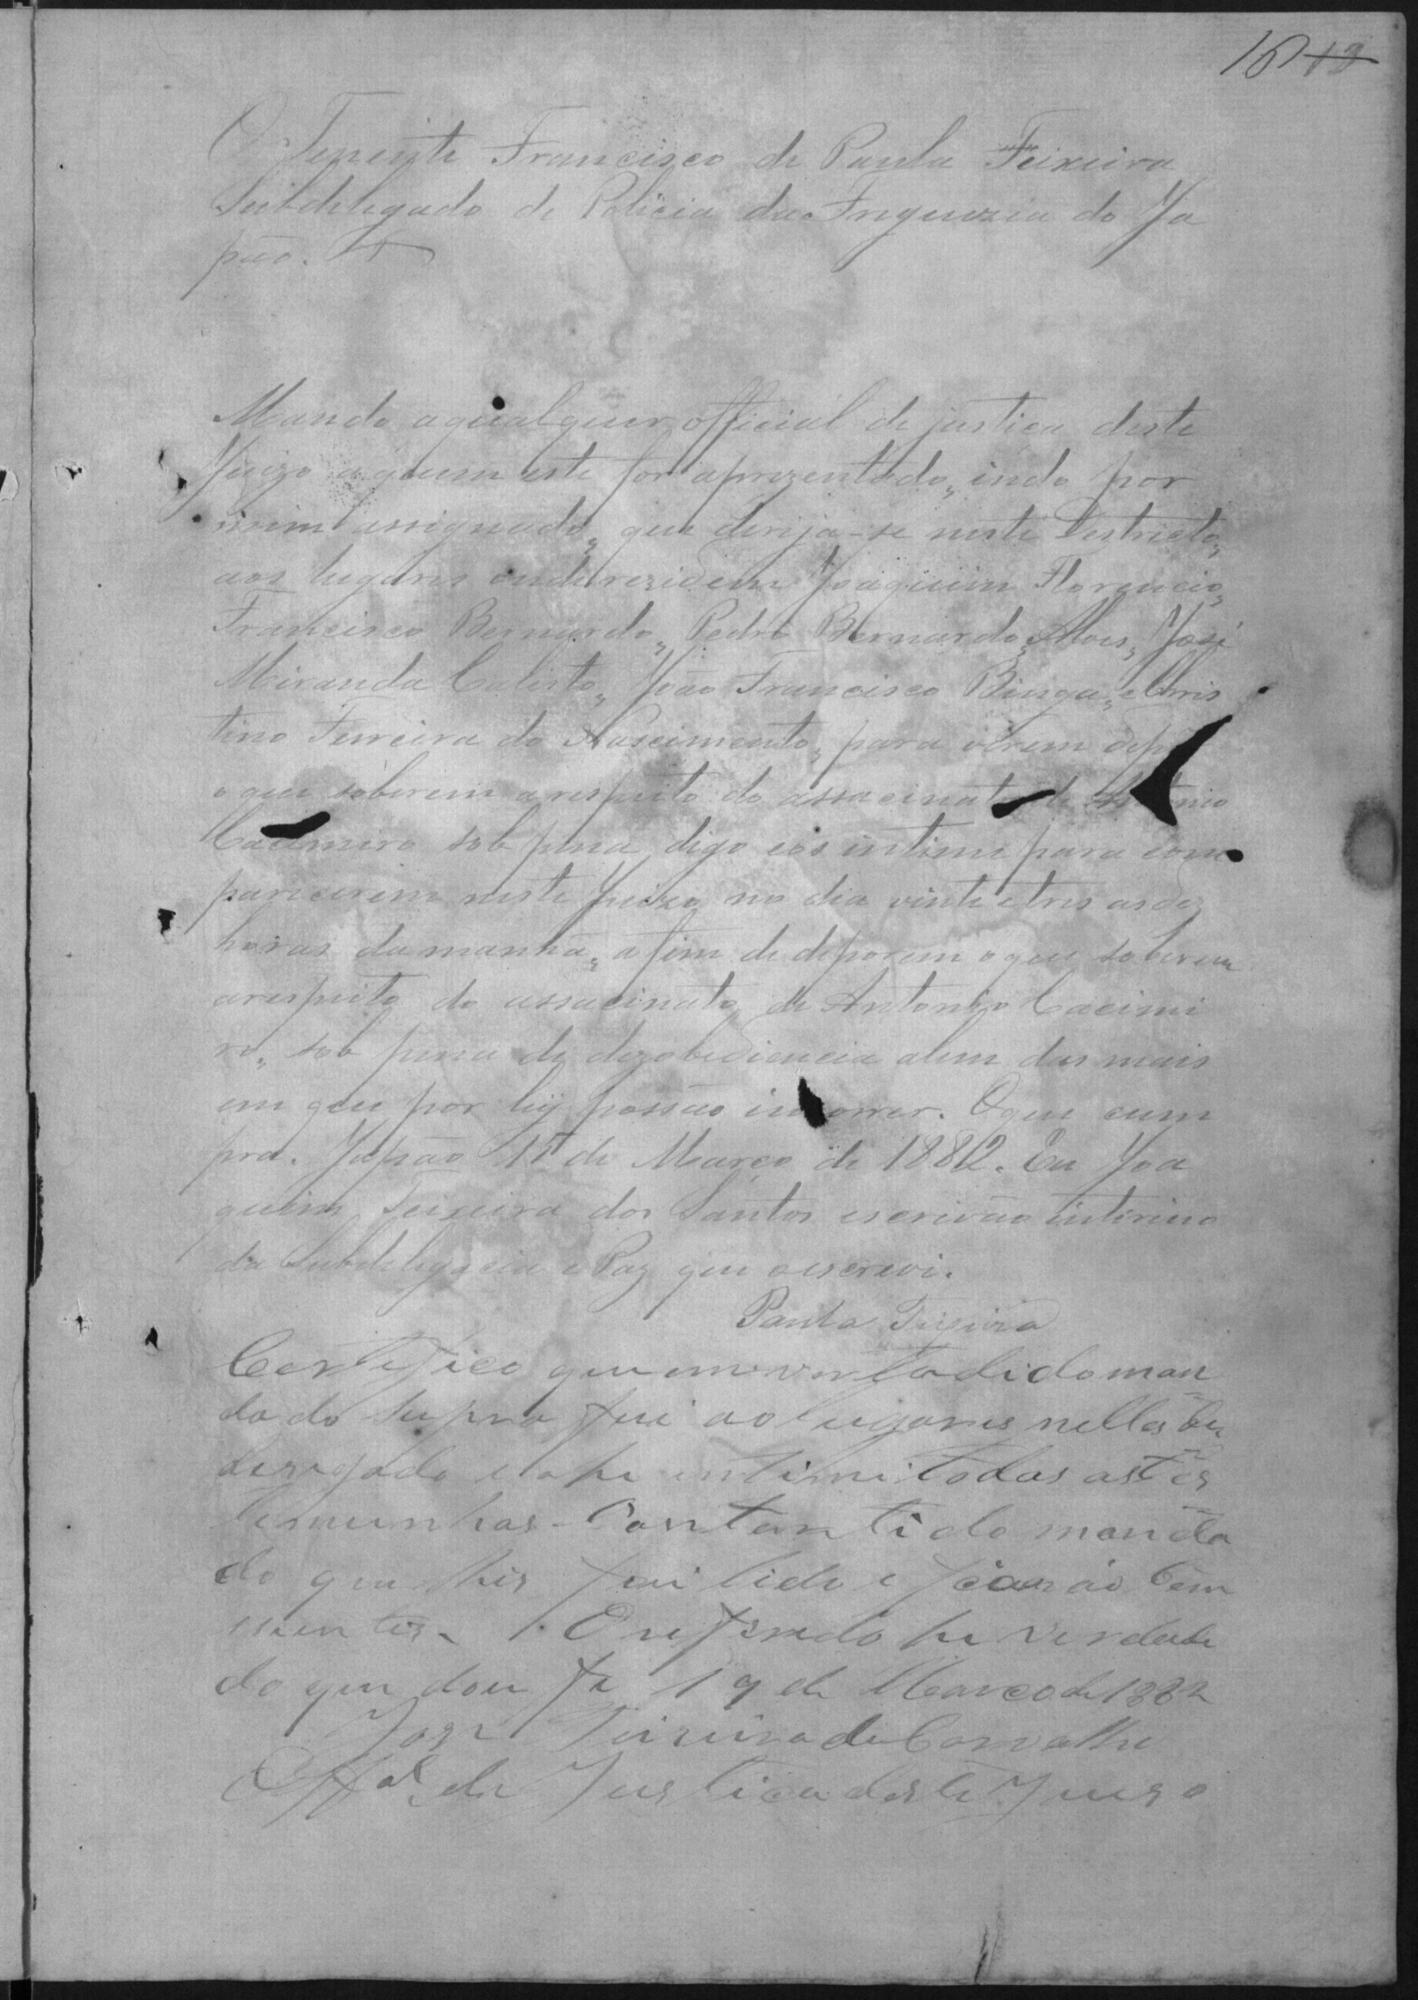 16 13
O Tenente Francisco de Paula Teixeira
Subdelegado de Policia da Freguezia do Ja
pão.
Mando a qualquer official de justiça deste
Juizo a quem este for aprezentado, indo por
mim assignado, que dirija-se neste Destricto,
aos lugares onde rezidem Joaquim Florencio,
Francisco Bernardo, Pedro Bernardo Alves, José
Miranda Calisto, João Francisco Binga, e Chris
tino Ferreira do Nascimento, para virem dep
o que soberem a respeito do assacinato de Antonio
Cacimiro sob pena digo e os intime para com
parecerem neste Juizo no dia vinte e tres as dez
horas da manhã, afim de deporem o que soberem
a respeito do assacinato de Antonio Cacimi
ro, sob pena de dezobediencia alem das mais
em que por ley possão incorrer. O que cum
pra. Japão 15 de Março de 1882. Eu Joa
quim Teixeira dos Santos escrivão interino
da Subdelegacia e Paz que o escrevi.
Paula Teixeira
Certifico que em vertodi do man
dado supra fui ao lugares nelle
e ahi intimei todas as tes
temunhas Constanti do manda
do que lhes foi lido e ficarão bem
sientes. O referido he verdade
do que dou fé 19 de Marco de 1882
José Teixeira de Carvalho
Offal. de Justica deste Juiso